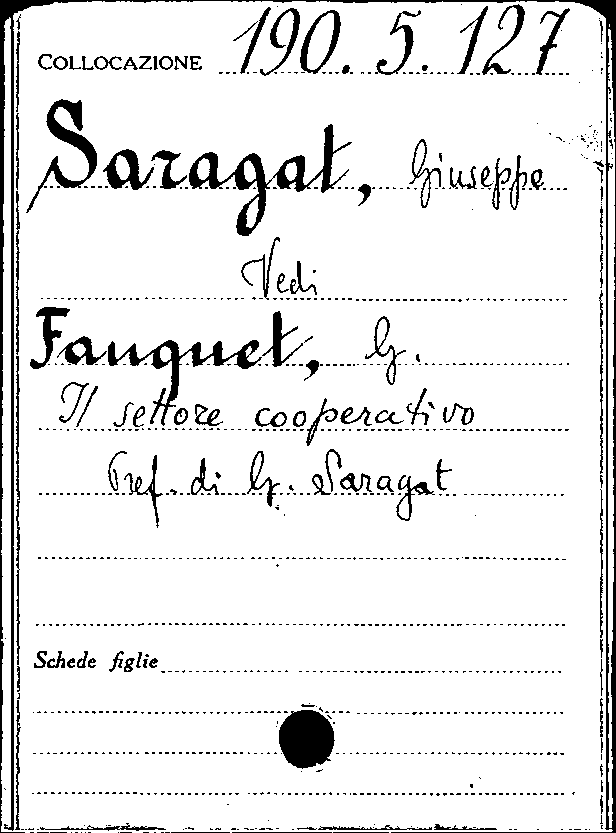 COLLOCAZIONE 190. 5. 127
Saragat, Giuseppe
Vedi
Fauquet, G.
Il settore cooperativo
Pref. di G. Saragat
Schede figlie